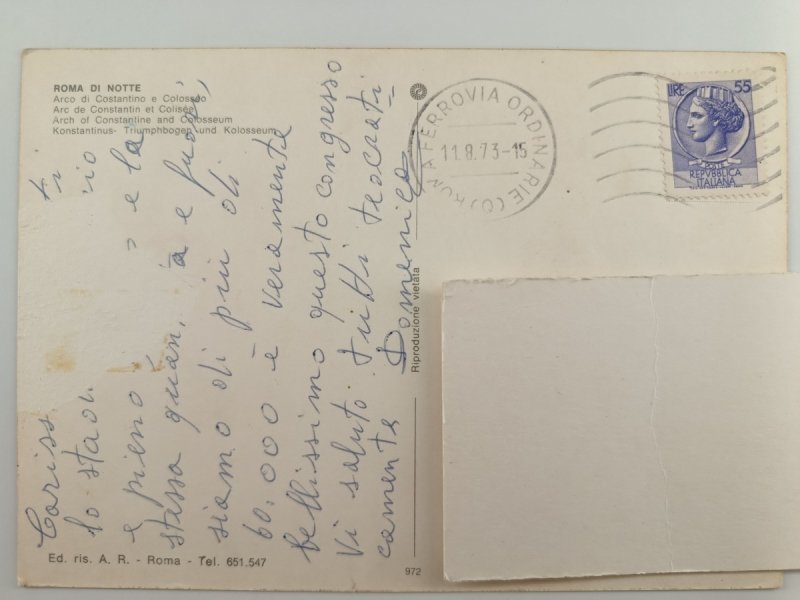 ROMA DI NOTTE
Arco di Costantino e Colosseo
Arc de Constantin et Colisée
Arch of Constantine and Colosseum
Konstantinus- Triumphbogen und Kolosseum
Cariss ti
lo stadi io
e pieno e la
stessa quan. tà e fuori,
siamo di più di
60.000 è veramente
bellissimo questo congresso
Vi saluto tutti teocrati
camente Domenico
Reproduzione vietata
Ed. ris. A. R. - Roma - Tel. 651.547
972
ROMA FERROVIA ORDINARIE (C)
11.8.73-15
LIRE 55
POSTE
REPVBBLICA
ITALIANA